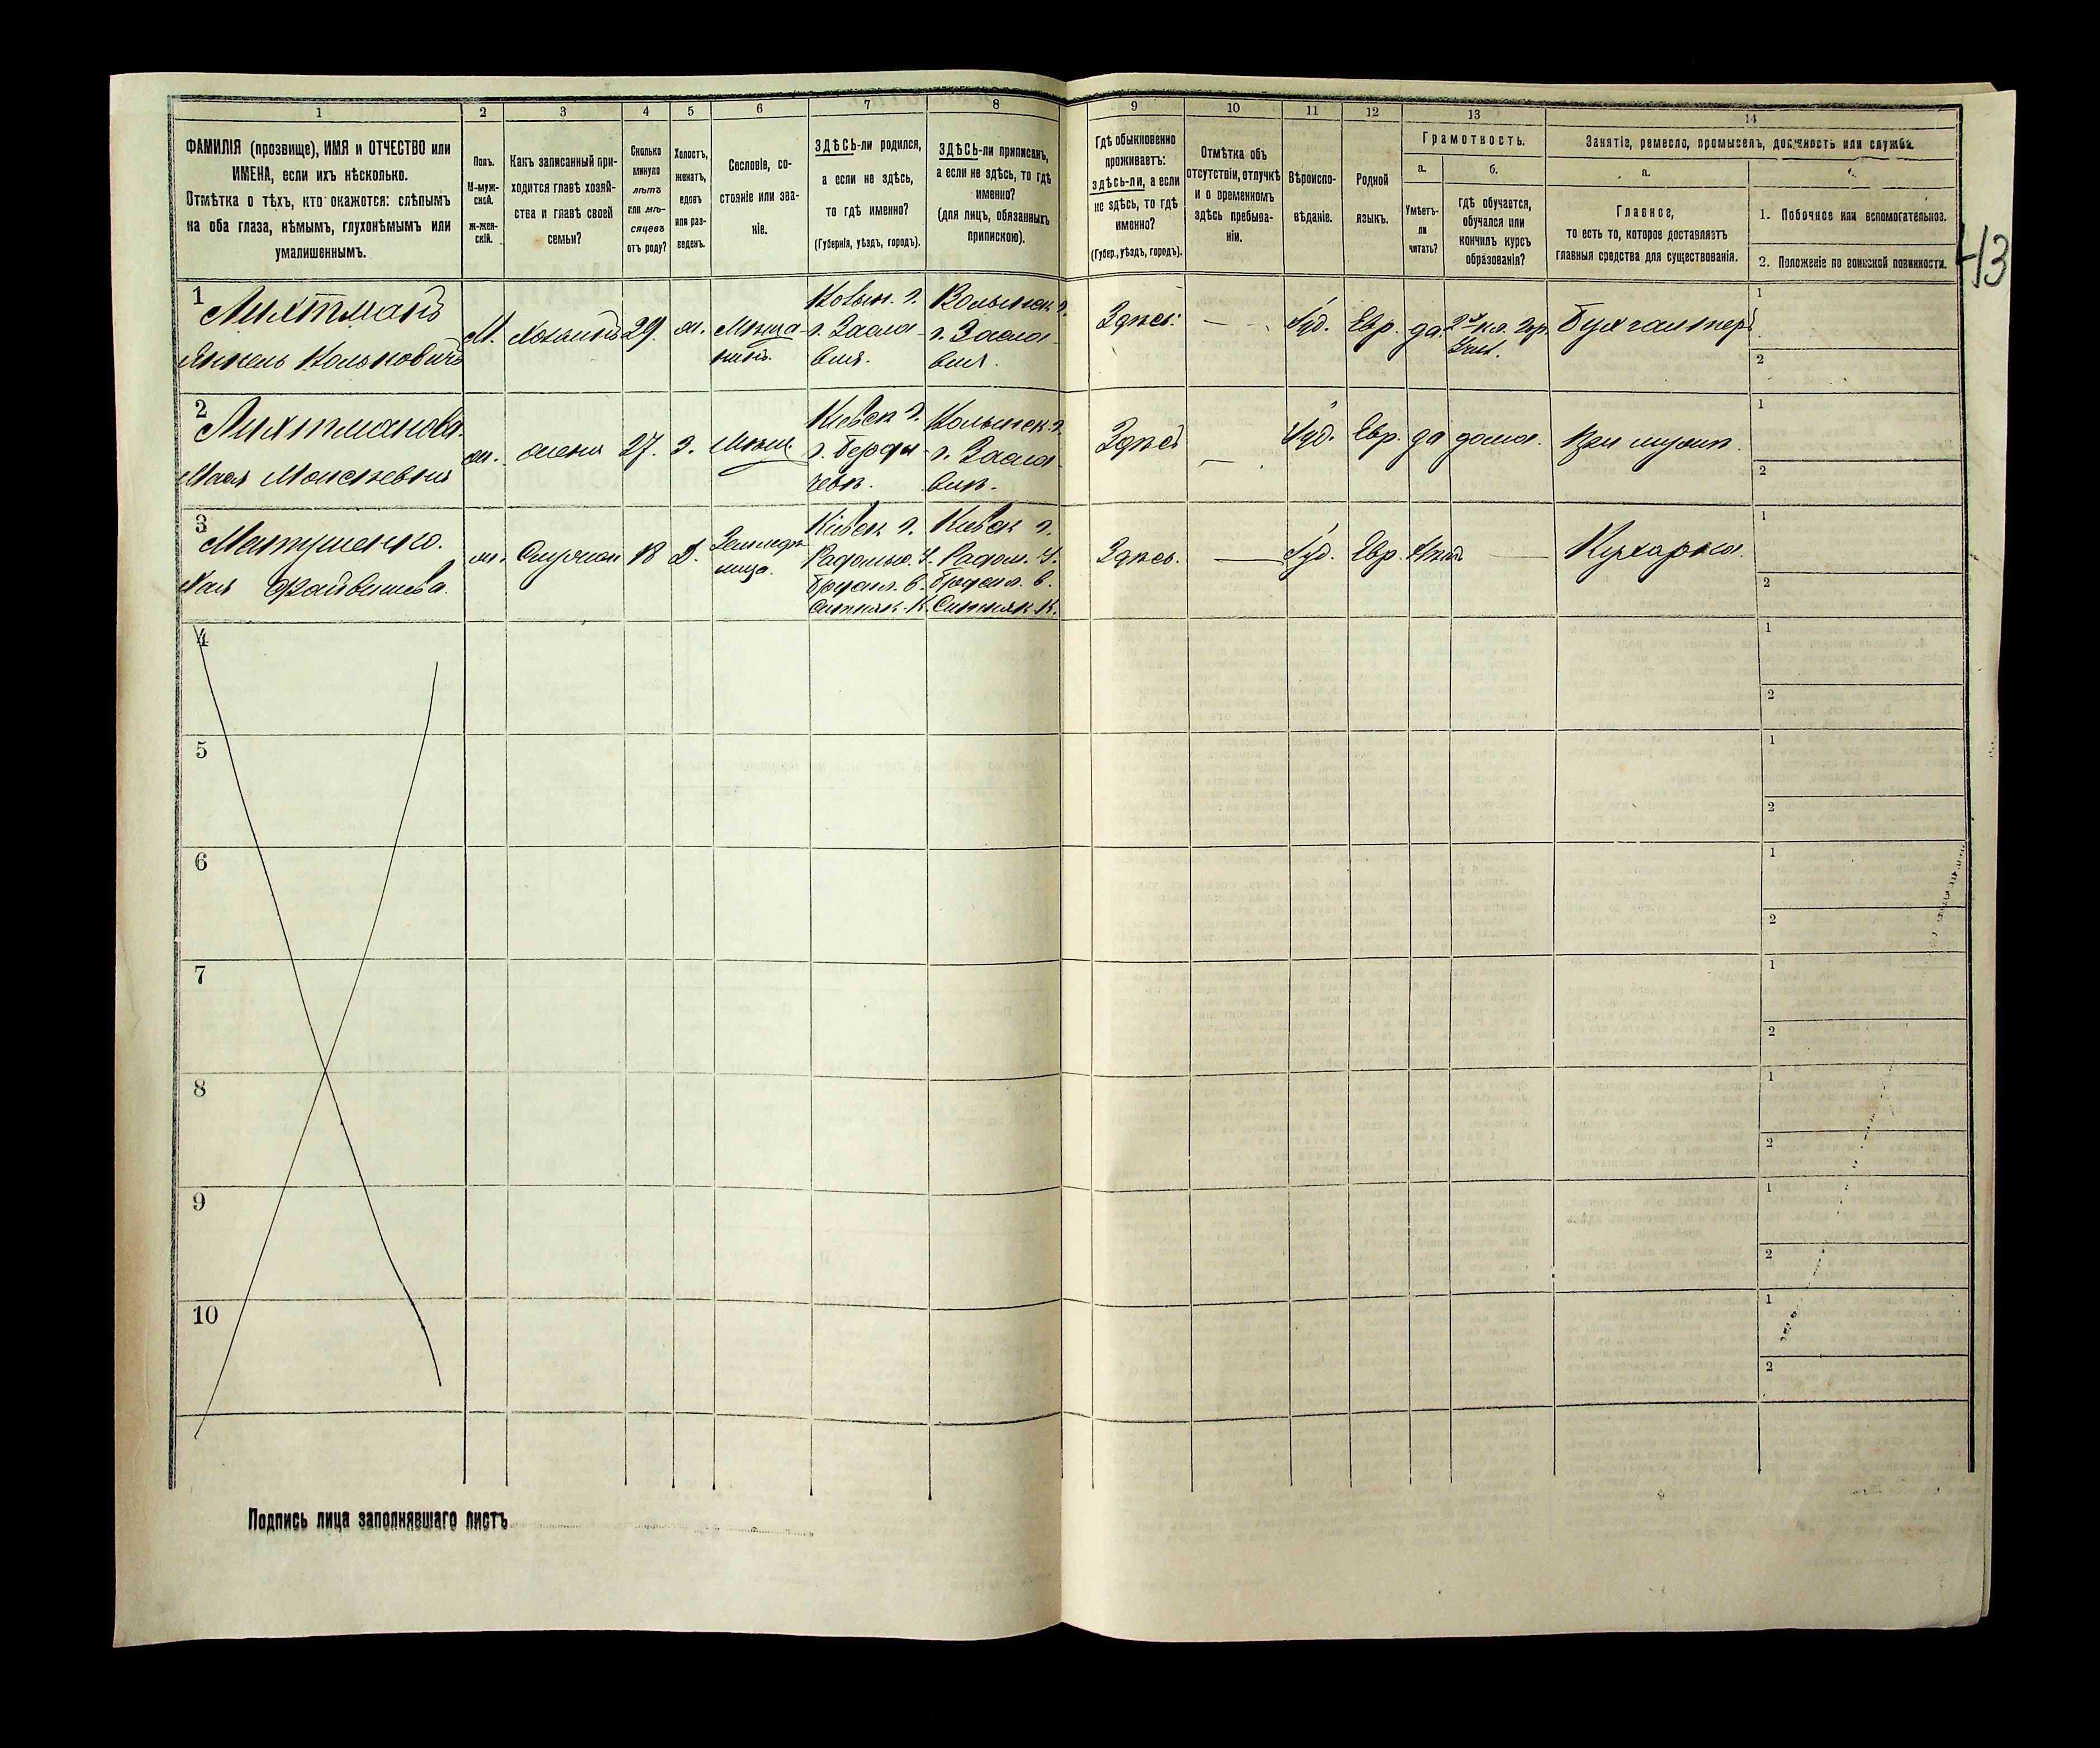 1 2 3 4 5 6 7 8 9 10 11 12 13 14
ФАМИЛІЯ (прозвище), ИМЯ и ОТЧЕСТВО или
ИМЕНА, если ихъ нѣсколько.
Отмѣтка о тѣхъ, кто окажотся: слѣпымъ
на оба глаза, нѣмымъ, глухонѣмымъ или
умалишеннымъ.
Полъ.
М-муж-
ской.
ж-жен-
скій.
Какъ записанный при-
ходится главѣ хозяй-
ства и главѣ своей
семьи?
Сколько
минуло
лѣтъ
или мѣ-
сяцевъ
отъ роду?
Холостъ,
женатъ,
вдовъ
или раз-
веденъ.
Сословіе, со-
стояніе или зва-
ніе.
ЗДѢСЬ-ли родился,
а если не здѣсь,
то гдѣ именно?
(Губернія, уѣздъ, городъ).
ЗДѢСЬ-ли приписанъ,
а если не здѣсь, то гдѣ
именно?
(для лицъ, обязанныхъ
припискою).
Гдѣ обыкновенно
проживаетъ:
здѣсь-ли, а если
не здѣсь, то гдѣ
именно?
(Губер., уѣздъ, городъ).
Отмѣтка объ
отсутствіи, отлучкѣ
и о временномъ
здѣсь пребыва-
ніи.
Вѣроиспо-
вѣданіе.
Родной
языкъ.
Грамотность.
а.
Умѣетъ-
ли
читать?
б.
гдѣ обучается,
обучался или
кончилъ курсъ
образованія?
Занятіе, ремесло, промыселъ, должность или служба.
а.
Главное,
то есть то, которое доставляетъ
главныя средства для существованія.
1. Побочное или вспомогательное.
2. Положеніе по воинской повинности.
43
1 Лихтманъ
Янкель Колькович
М.
Хозяинъ
29.
ж.
Мѣща-
нинъ.
Волын. г.
г. Заслав-
вля.
Волынск. г.
г. Засла-
вля.
Здѣсь.
—
Іуд.
Евр.
да.
Бухгалтеръ
1
2
2 Лихтманова
Мася Моисѣевна
ж.
жена
27.
З.
Мѣщ.
Кіевск г.
г. Берди-
чевѣ.
Волынск. г.
г. Засла-
влѣ.
Здѣсь
—
Іуд.
Евр.
да
дома.
При мужѣ.
1
2
3 Матушенко.
Хая Файвишева.
ж.
Служан
18
Д.
Кіевск г.
Радомыс. У.
Кіевск г.
Радом. У.
Здѣсь.
—
Іуд.
Евр.
Нѣтъ
—
Кухарка.
1
2
4
1
2
5
1
2
6
1
2
7
1
2
8
1
2
9
1
2
10
1
2
Подпись лица заполнявшаго листъ